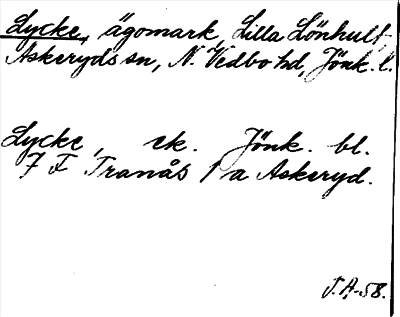 Lycke, ägomark, Lilla Lönhult,
Askeryds sn, N. Vedbo hd, Jönk. l.
Lycke, ek. Jönk. bl.
7 F Tranås 1 a Askeryd.
J. A-58.